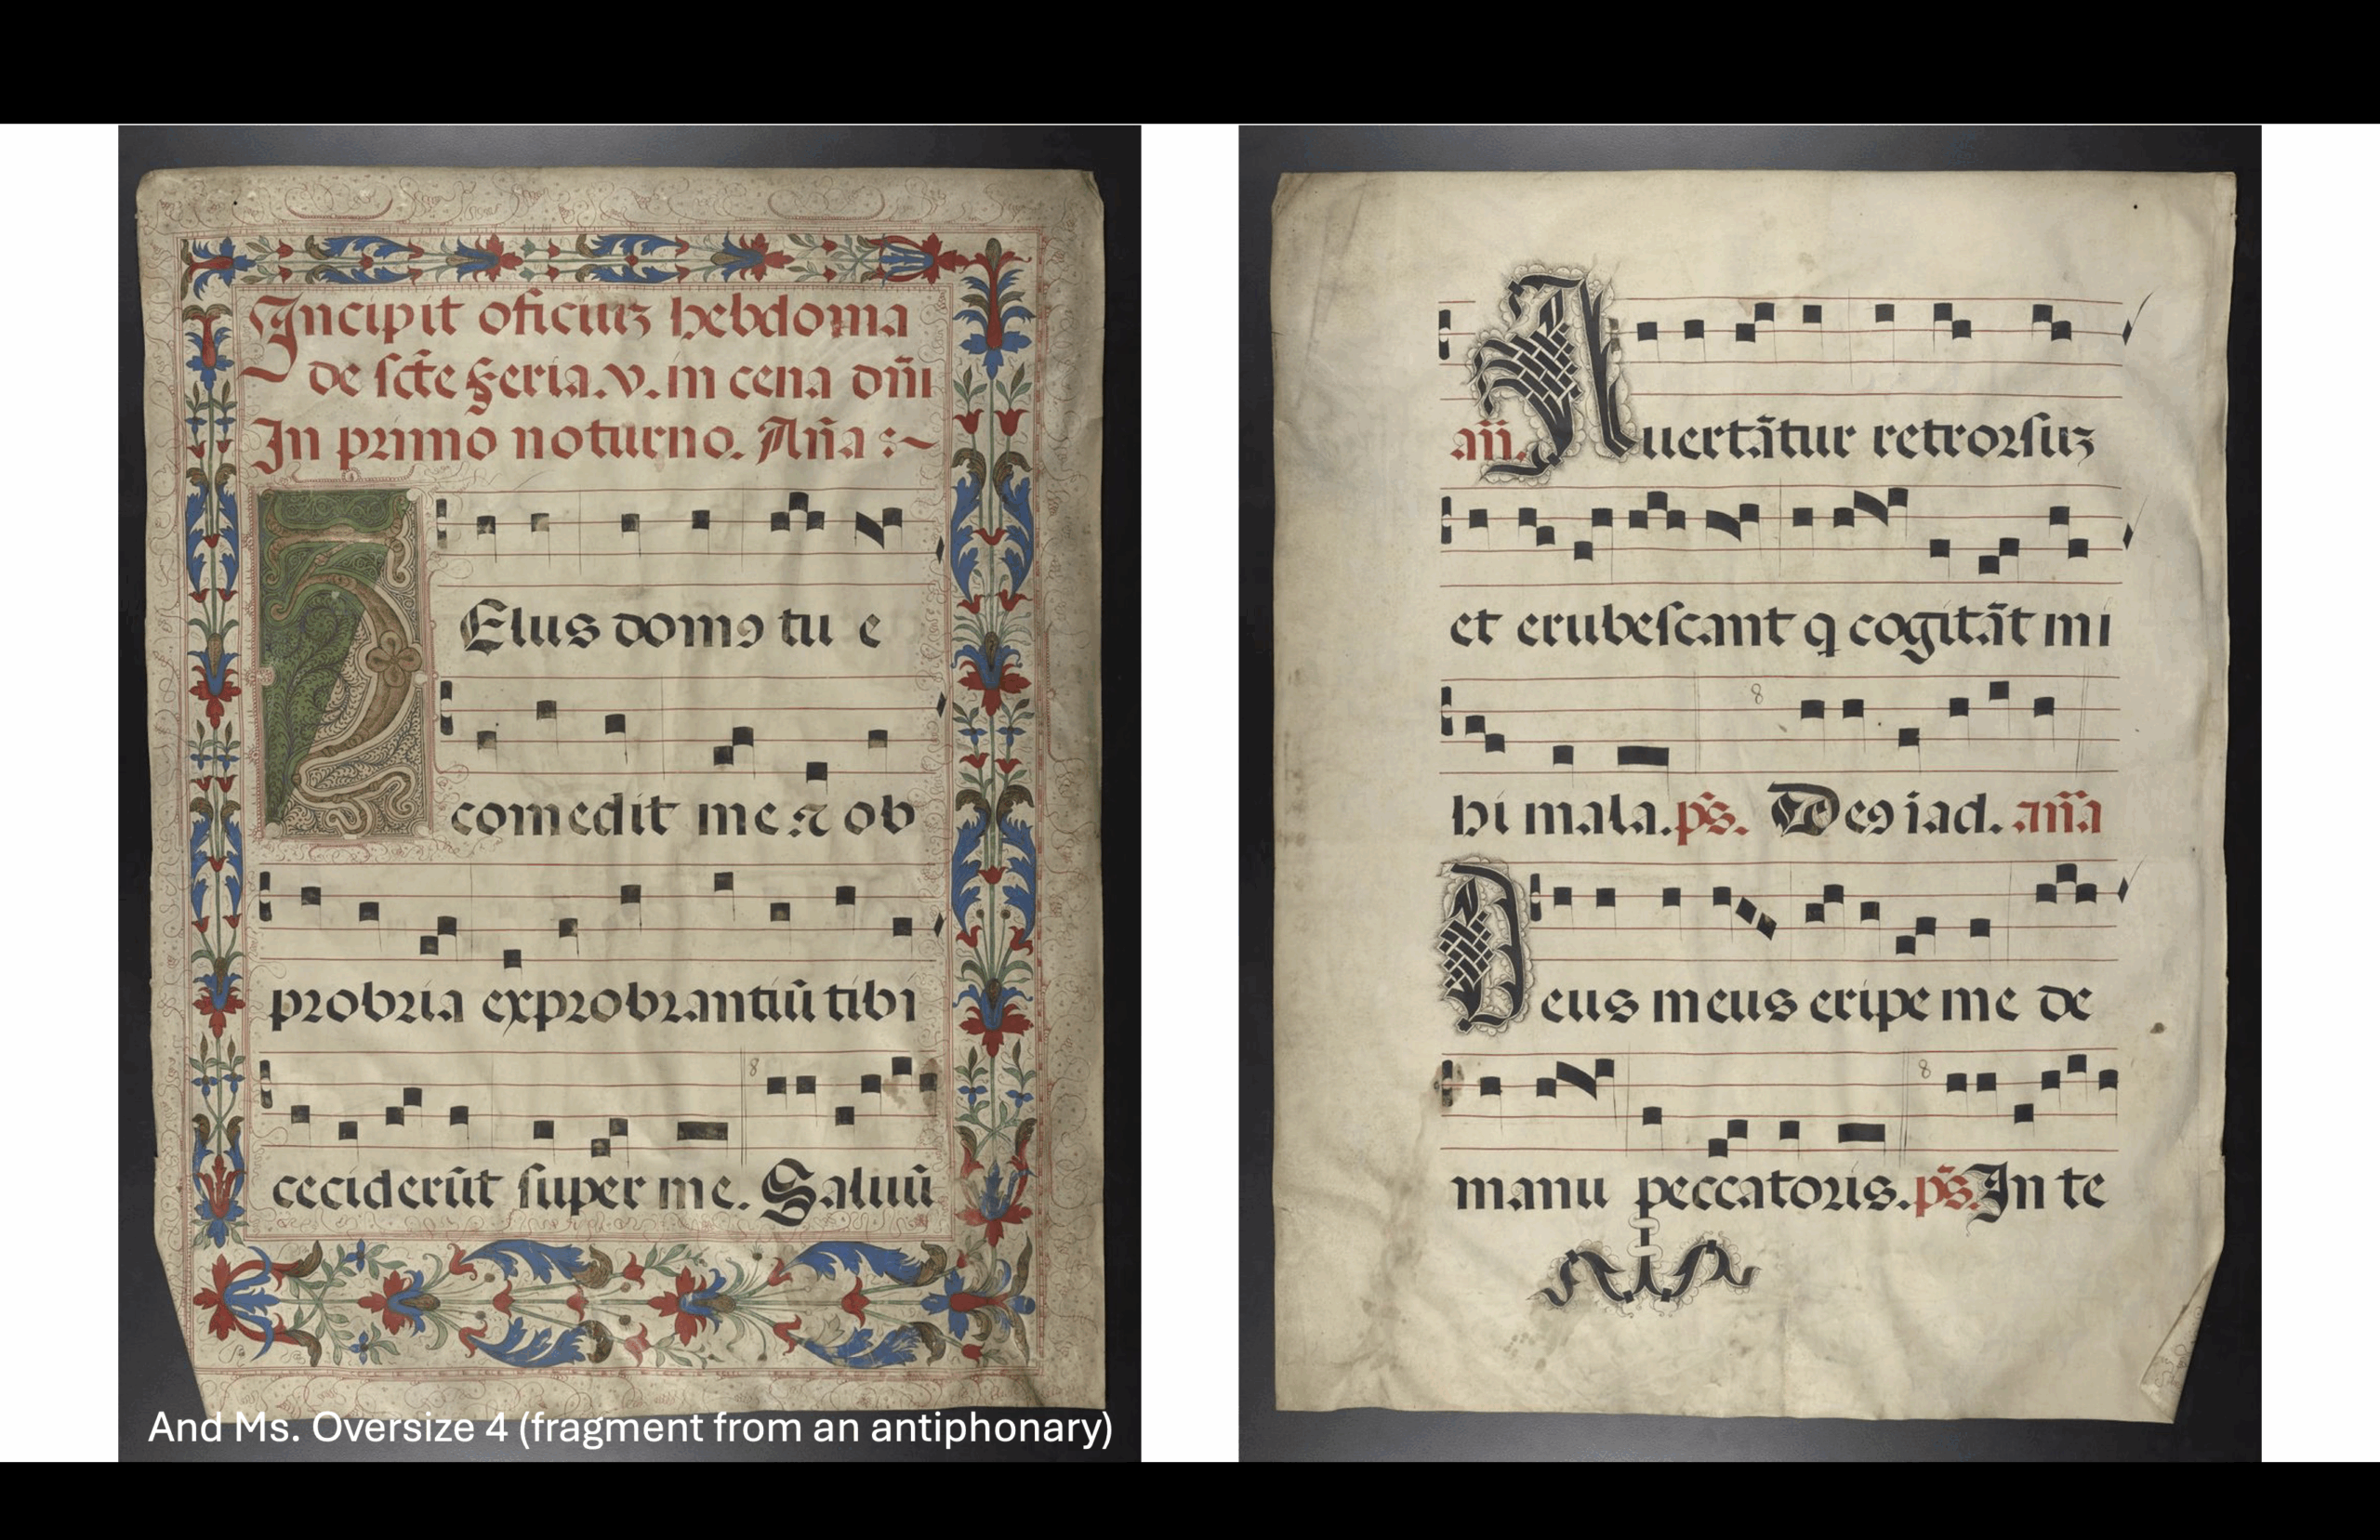 Incipit oficiuʒ hebdoma
de sct̃e feria.v. in cena dñi
In primo noturno. Aña :~
ZElus domꝯ tu e
comedit me.⁊ ob
probria exprobrantiũ tibi
8
ceciderũt super me. Saluũ
And Ms. Oversize 4 (fragment from an antiphonary)
añ. Auertãtur retrorsuʒ
et erubescant q cogitãt mi
8
hi mala. ps̃. Deꝯ iad. aña
Deus meus eripe me de
8
manu peccatoris. ps̃. In te